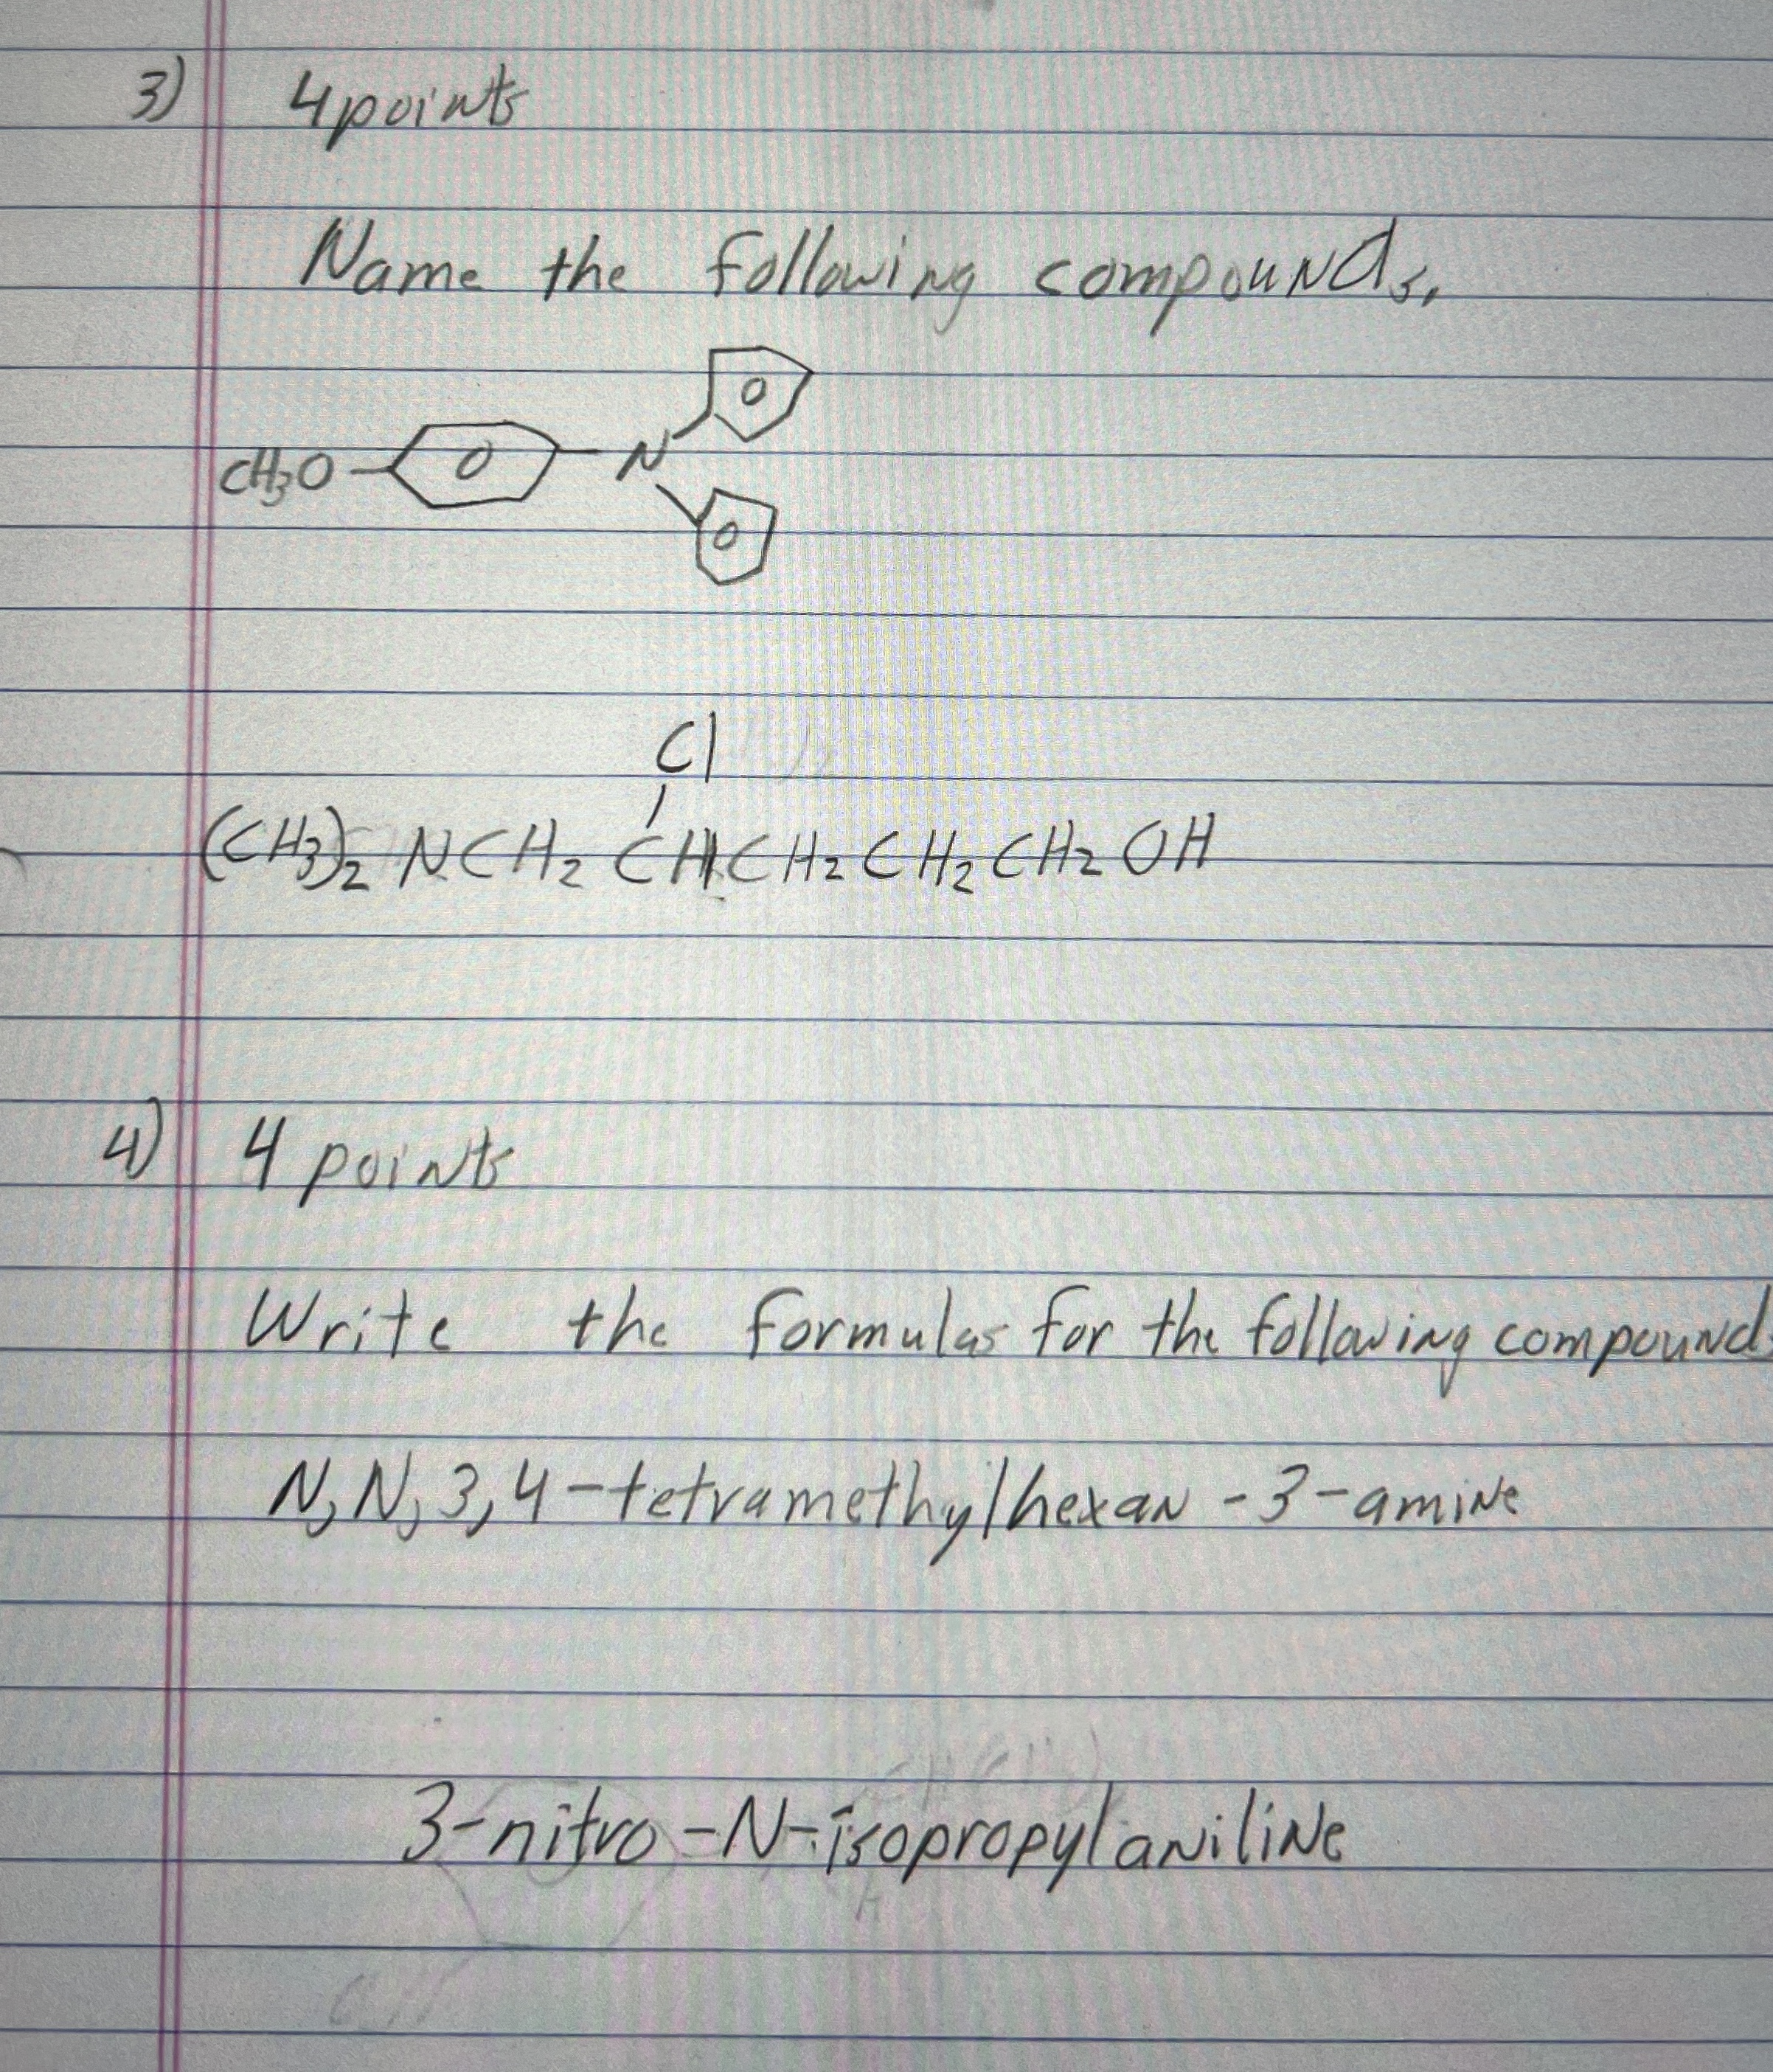 3) 4 points
Name the following compounds.
CH3O N
Cl
(CH3)2 NCH2 CHCH2CH2CH2OH
4) 4 points
Write the formulas for the following compound
N,N,3,4-tetramethylhexan-3-amine
3-nitro-N-isopropylaniline